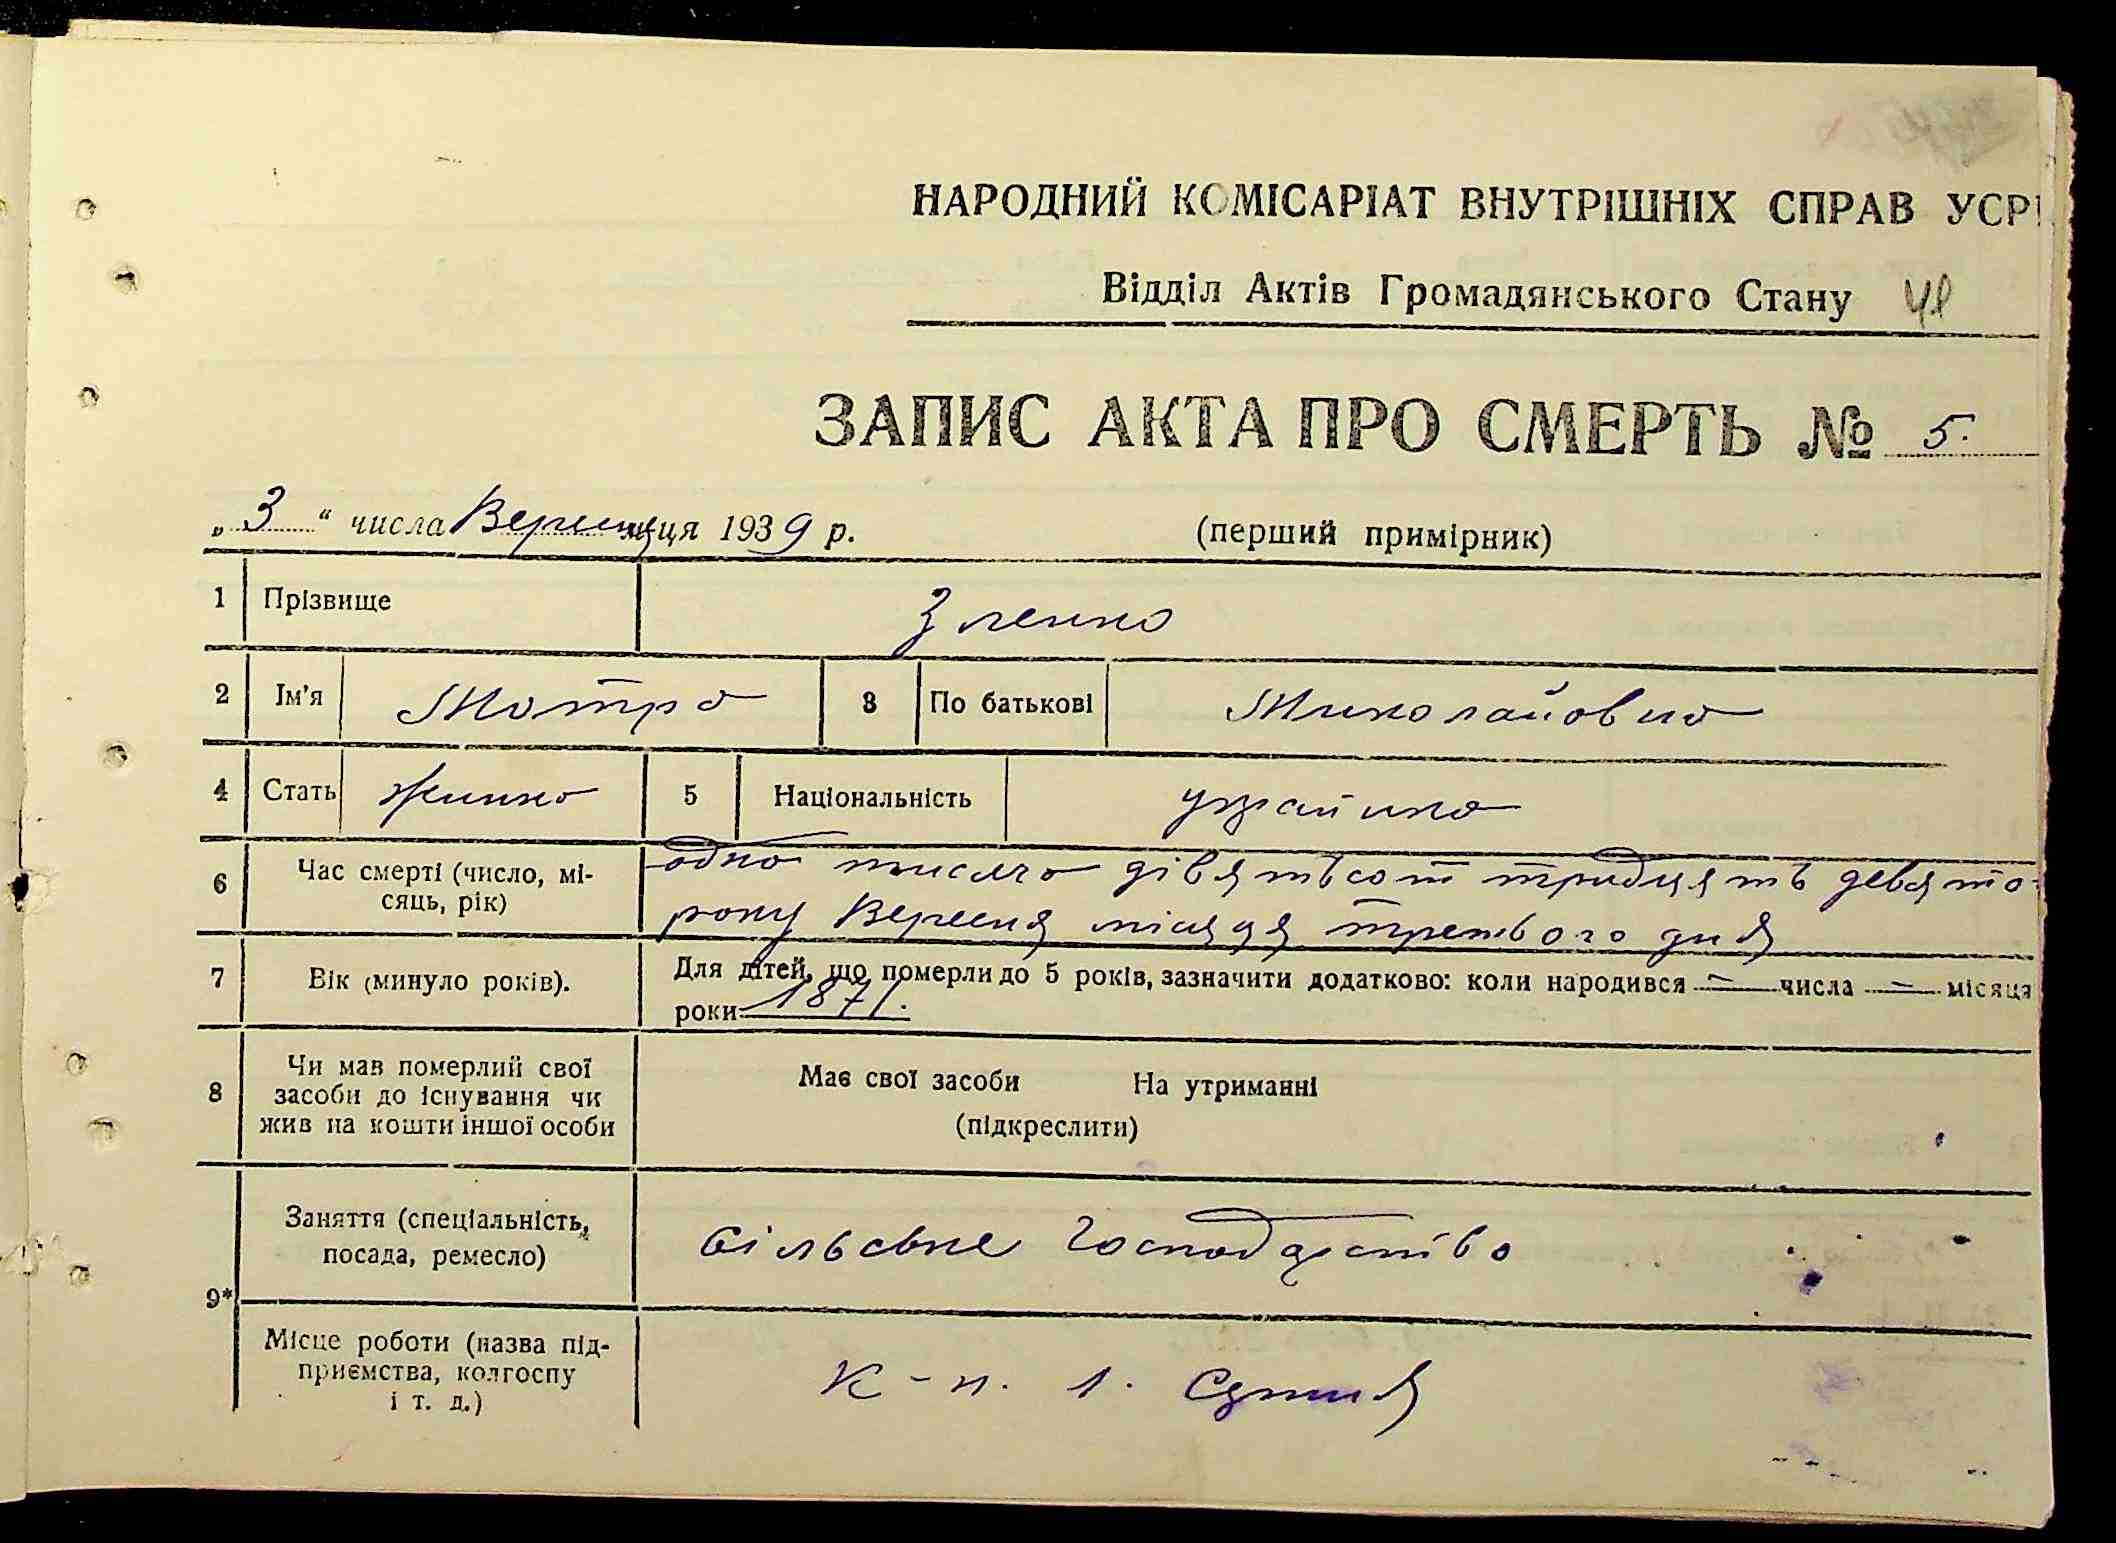 НАРОДНИЙ КОМІСАРІАТ ВНУТРІШНІХ СПРАВ УСР
Відділ Актів Громадянського Стану 41
ЗАПИС АКТА ПРО СМЕРТЬ № 5.
„ 3 “ числа Вересня місяця 1939 р. (перший примірник)
1 Прізвище Зленко
2 Ім'я Мотря 3 По батькові Миколайовна
4 Стать жинка 5 Національність украйнка
6 Час смерті (число, мі-
сяць, рік)
одна тисяча дівятьсот тридцять девято-
року Вересня місяця третього дня
7 Вік (минуло років).
Для дітей, що померли до 5 років, зазначити додатково: коли народився — числа — місяця
роки 1871.
8 Чи мав померлий свої
засоби до існування чи
жив на кошти іншої особи
Має свої засоби На утриманні
(підкреслити)
9*
Заняття (спеціальність,
посада, ремесло)
сільське господарство
Місце роботи (назва під-
приємства, колгоспу
і т. д.)
К-п. 1.